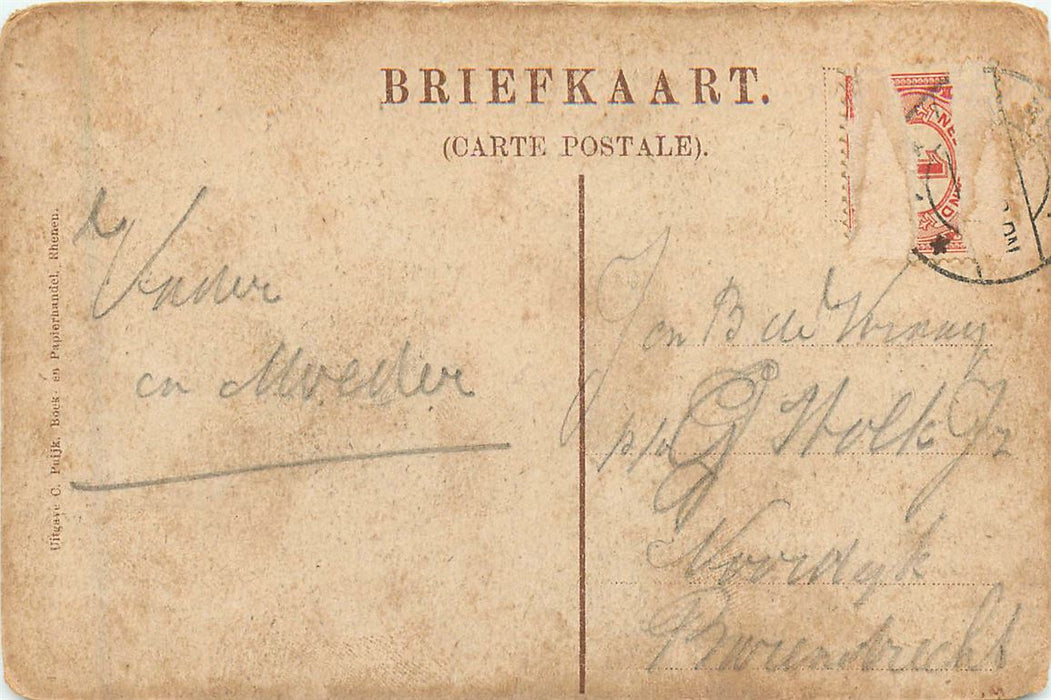 BRIEFKAART.
(CARTE POSTALE).
Uitgave C. Puijk, Boek- en Papierhandel, Rhenen.
Vader
en Moeder
J en B de
p/a G Stolk Jz
Noordijk
Barendrecht